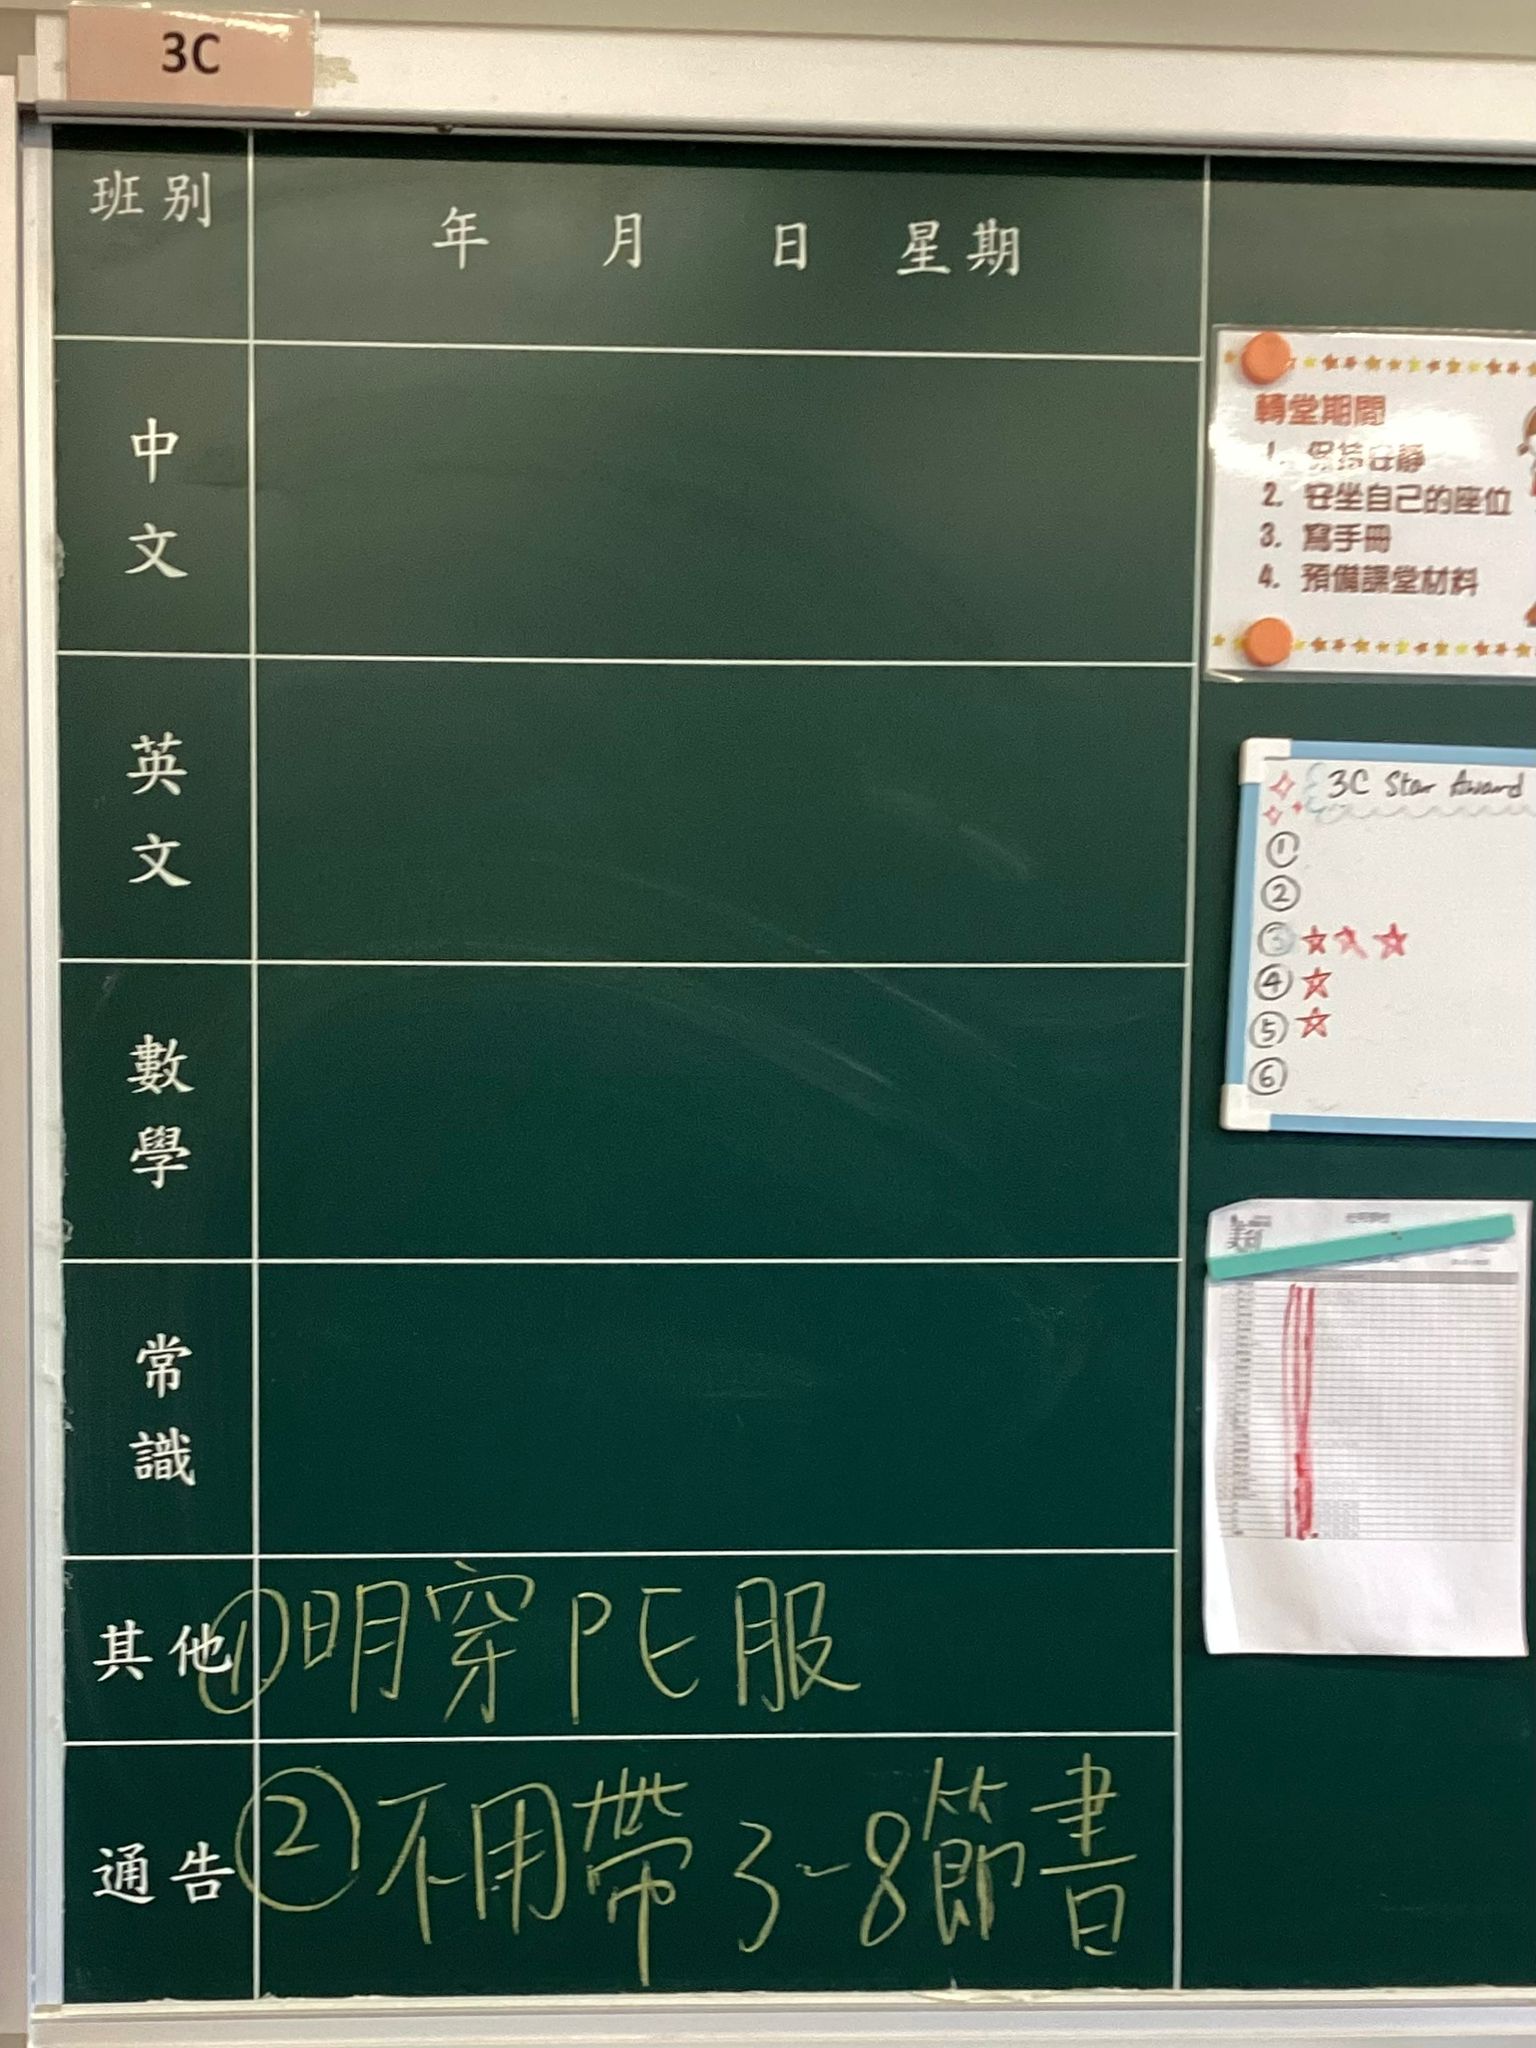 3C
班別
年 月 日 星期
中文
英文
數學
常識
其他
①明穿PE服
通告
②不用帶3~8節書
轉堂期間
1. 保持安靜
2. 安坐自己的座位
3. 寫手冊
4. 預備課堂材料
3C Star Award
①
②
③
④
⑤
⑥